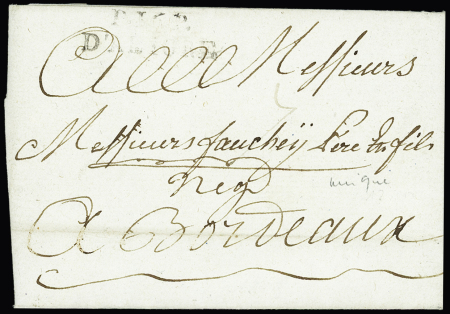 A Messieurs
Messieurs faucheÿ Pere En fils
Neg
A Bordeaux
unique